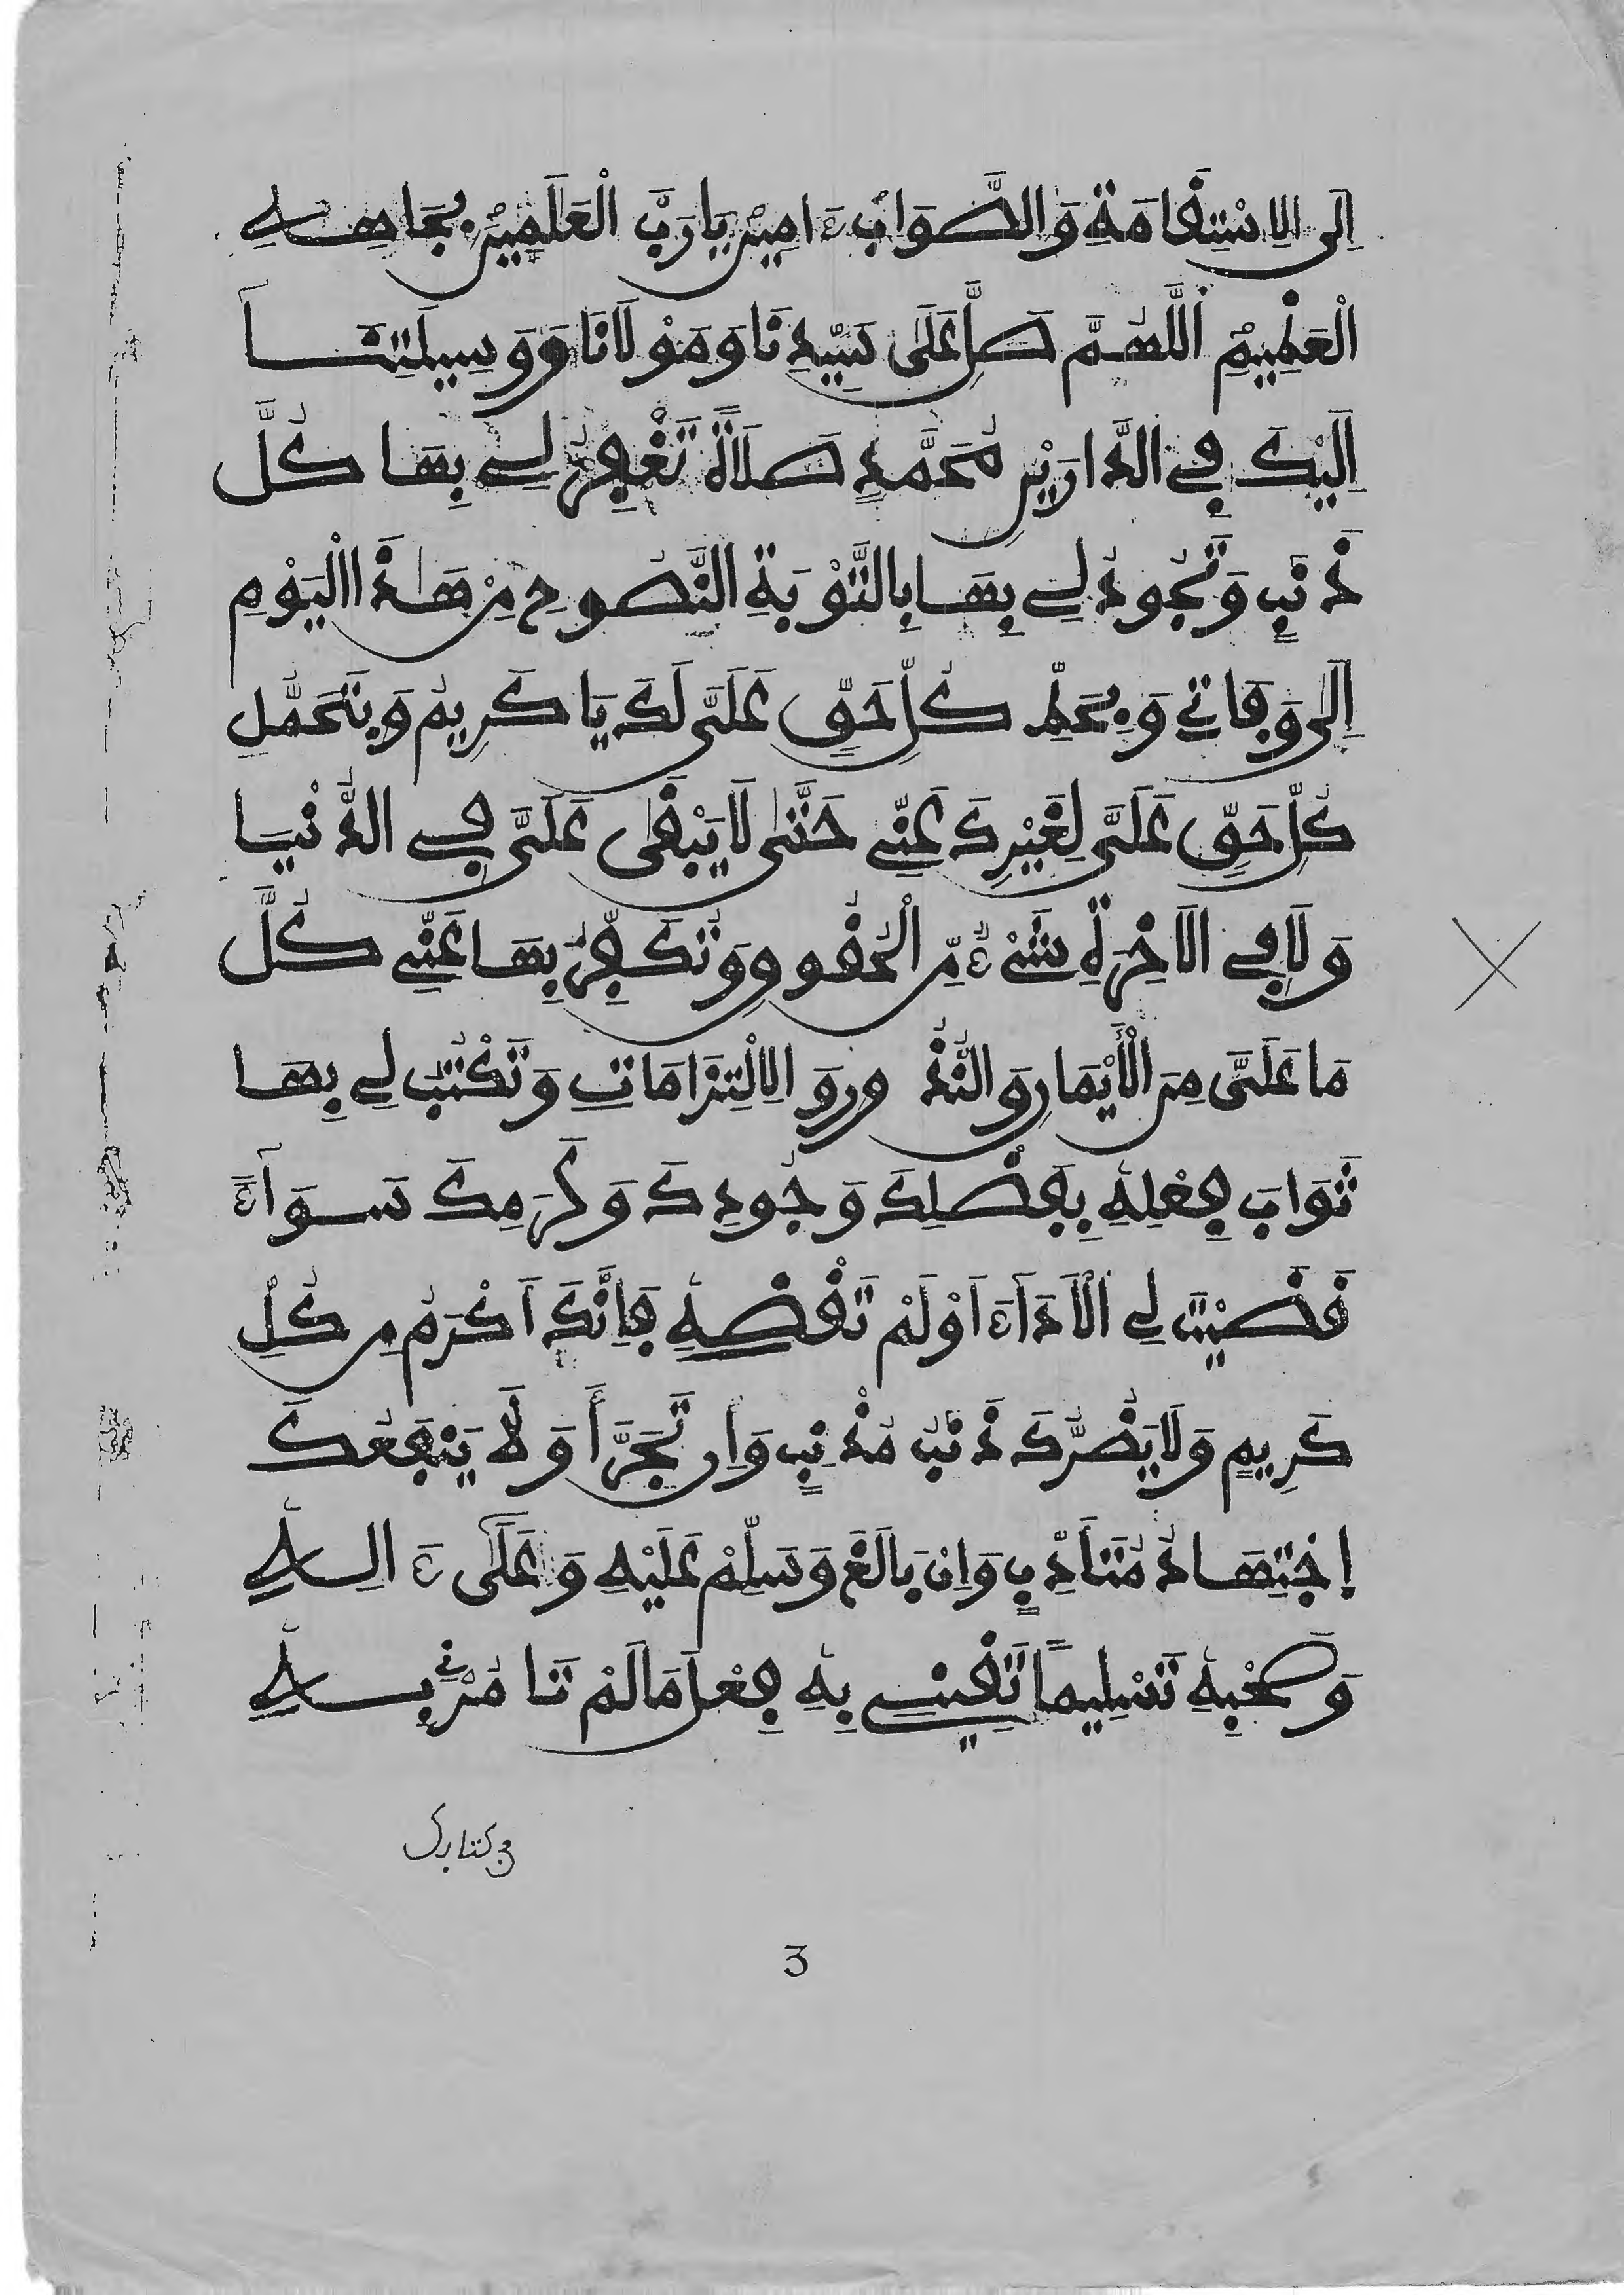 إِلَى الِاسْتِقَامَةِ وَالصَّوَابِ ءَامِينَ يَا رَبَّ الْعَلَمِينَ بِجَاهِهِ
الْعَظِيمِ اَللَّهُمَّ صَلِّ عَلَى سَيِّدِنَا وَمَوْلَانَا وَوَسِيلَتِنَا
إِلَيْكَ فِي الدَّارَيْنِ مُحَمَّدٍ صَلَاةً تَغْفِرُ لِي بِهَا كُلَّ
ذَنْبٍ وَتَجُودُ لِي بِهَا بِالتَّوْبَةِ النَّصُوحِ مِنْ هَـٰذَا الْيَوْمِ
إِلَى وَفَاتِي وَبِحَطِّ كُلِّ حَقٍّ عَلَيَّ لَكَ يَا كَرِيمُ وَبِتَحَمُّلِ
كُلِّ حَقٍّ عَلَيَّ لِغَيْرِكَ عَنِّي حَتَّى لَا يَبْقَى عَلَيَّ فِي الدُّنْيَا
وَلَا فِي الَاخِرَةِ شَيْءٌ مِّنَ الْحُقُوقِ وَتُكَفِّرُ بِهَا عَنِّي كُلَّ
مَا عَلَيَّ مِنَ الْأَيْمَانِ وَالنُّذُورِ وَالِالْتِزَامَاتِ وَتَكْتُبُ لِي بِهَا
ثَوَابَ فِعْلِهِ بِفَضْلِكَ وَجُودِكَ وَكَرَمِكَ سَوَآءً
قَضَيْتَ لِي الْأَدَآءَ اَوْ لَمْ تَقْضِهِ فَإِنَّكَ أَكْرَمُ مِن كُلِّ
كَرِيمٍ وَلَا يَضُرُّكَ ذَنْبُ مُذْنِبٍ وَإِن تَجَرَّأَ وَلَا يَنْفَعُكَ
إِجْتِهَادُ مُتَأَدِّبٍ وَإِنْ بَالَغَ وَسَلِّمْ عَلَيْهِ وَعَلَى ءَالِهِ
وَصَحْبِهِ تَسْلِيماً تَقِينِي بِهِ فِعْلَ مَا لَمْ تَامُرْنِي بِهِ
في كتابك
3